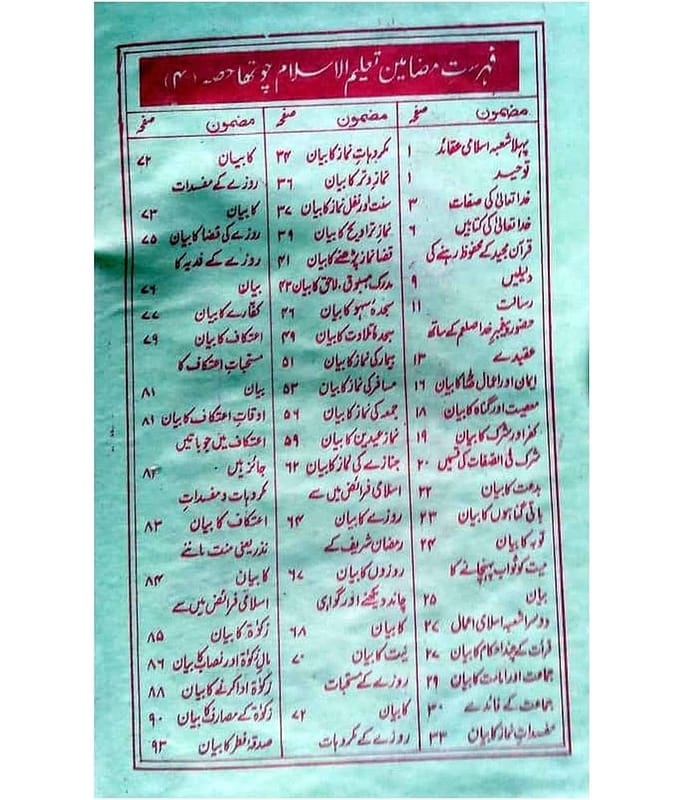 فہرست مضامین تعلیم الاسلام چوتھا حصہ (۴)
مضمون صفحہ
پہلا شعبہ اسلامی عقائد ۱
توحید ۱
خدا تعالیٰ کی صفات ۳
خدا تعالیٰ کی کتابیں ۶
قرآن مجید کے محفوظ رہنے کی
دلیلیں ۹
رسالت ۱۱
حضور پیغمبر خدا صلعم کے ساتھ
عقیدے ۱۳
ایمان اور اعمال کا بیان ۱۶
معصیت اور گناہ کا بیان ۱۸
کفر اور شرک کا بیان ۱۹
شرک فی الصفات کی قسمیں ۲۰
بدعت کا بیان ۲۲
باقی گناہوں کا بیان ۲۳
توبہ کا بیان ۲۴
میت کو ثواب پہنچانے کا
بیان ۲۵
دوسرا شعبہ اسلامی اعمال ۲۷
قرأت کے چند احکام کا بیان ۲۷
جماعت اور امامت کا بیان ۲۹
جماعت کے فائدے ۳۰
مفسداتِ نماز کا بیان ۳۳
مضمون صفحہ
مکروہاتِ نماز کا بیان ۳۴
نمازِ وتر کا بیان ۳۶
سنت اور نفل نماز کا بیان ۳۷
نمازِ تراویح کا بیان ۳۹
قضا نماز پڑھنے کا بیان ۴۱
مدرک مسبوق، لاحق کا بیان ۴۳
سجدہ سہو کا بیان ۴۶
سجدہ تلاوت کا بیان ۴۹
بیمار کی نماز کا بیان ۵۱
مسافر کی نماز کا بیان ۵۳
جمعہ کی نماز کا بیان ۵۶
نمازِ عیدین کا بیان ۵۹
جنازے کی نماز کا بیان ۶۲
اسلامی فرائض میں سے
روزے کا بیان ۶۴
رمضان شریف کے
روزوں کا بیان ۶۷
چاند دیکھنے اور گواہی
کا بیان ۶۸
نیت کا بیان ۷۰
روزے کے مستحبات
کا بیان ۷۲
روزے کے مکروہات
مضمون صفحہ
کا بیان ۷۲
روزے کے مفسدات
کا بیان ۷۳
روزے کی قضا کا بیان ۷۵
روزے کے فدیہ کا
بیان ۷۶
کفارے کا بیان ۷۷
اعتکاف کا بیان ۷۹
مستحباتِ اعتکاف کا
بیان ۸۱
اوقاتِ اعتکاف کا بیان ۸۱
اعتکاف میں جو باتیں
جائز ہیں ۸۲
مکروہات و مفسداتِ
اعتکاف کا بیان ۸۳
نذر یعنی منت ماننے
کا بیان ۸۴
اسلامی فرائض میں سے
زکوٰۃ کا بیان ۸۵
مالِ زکوٰۃ اور نصاب کا بیان ۸۶
زکوٰۃ ادا کرنے کا بیان ۸۸
زکوٰۃ کے مصارف کا بیان ۹۰
صدقہ فطر کا بیان ۹۳